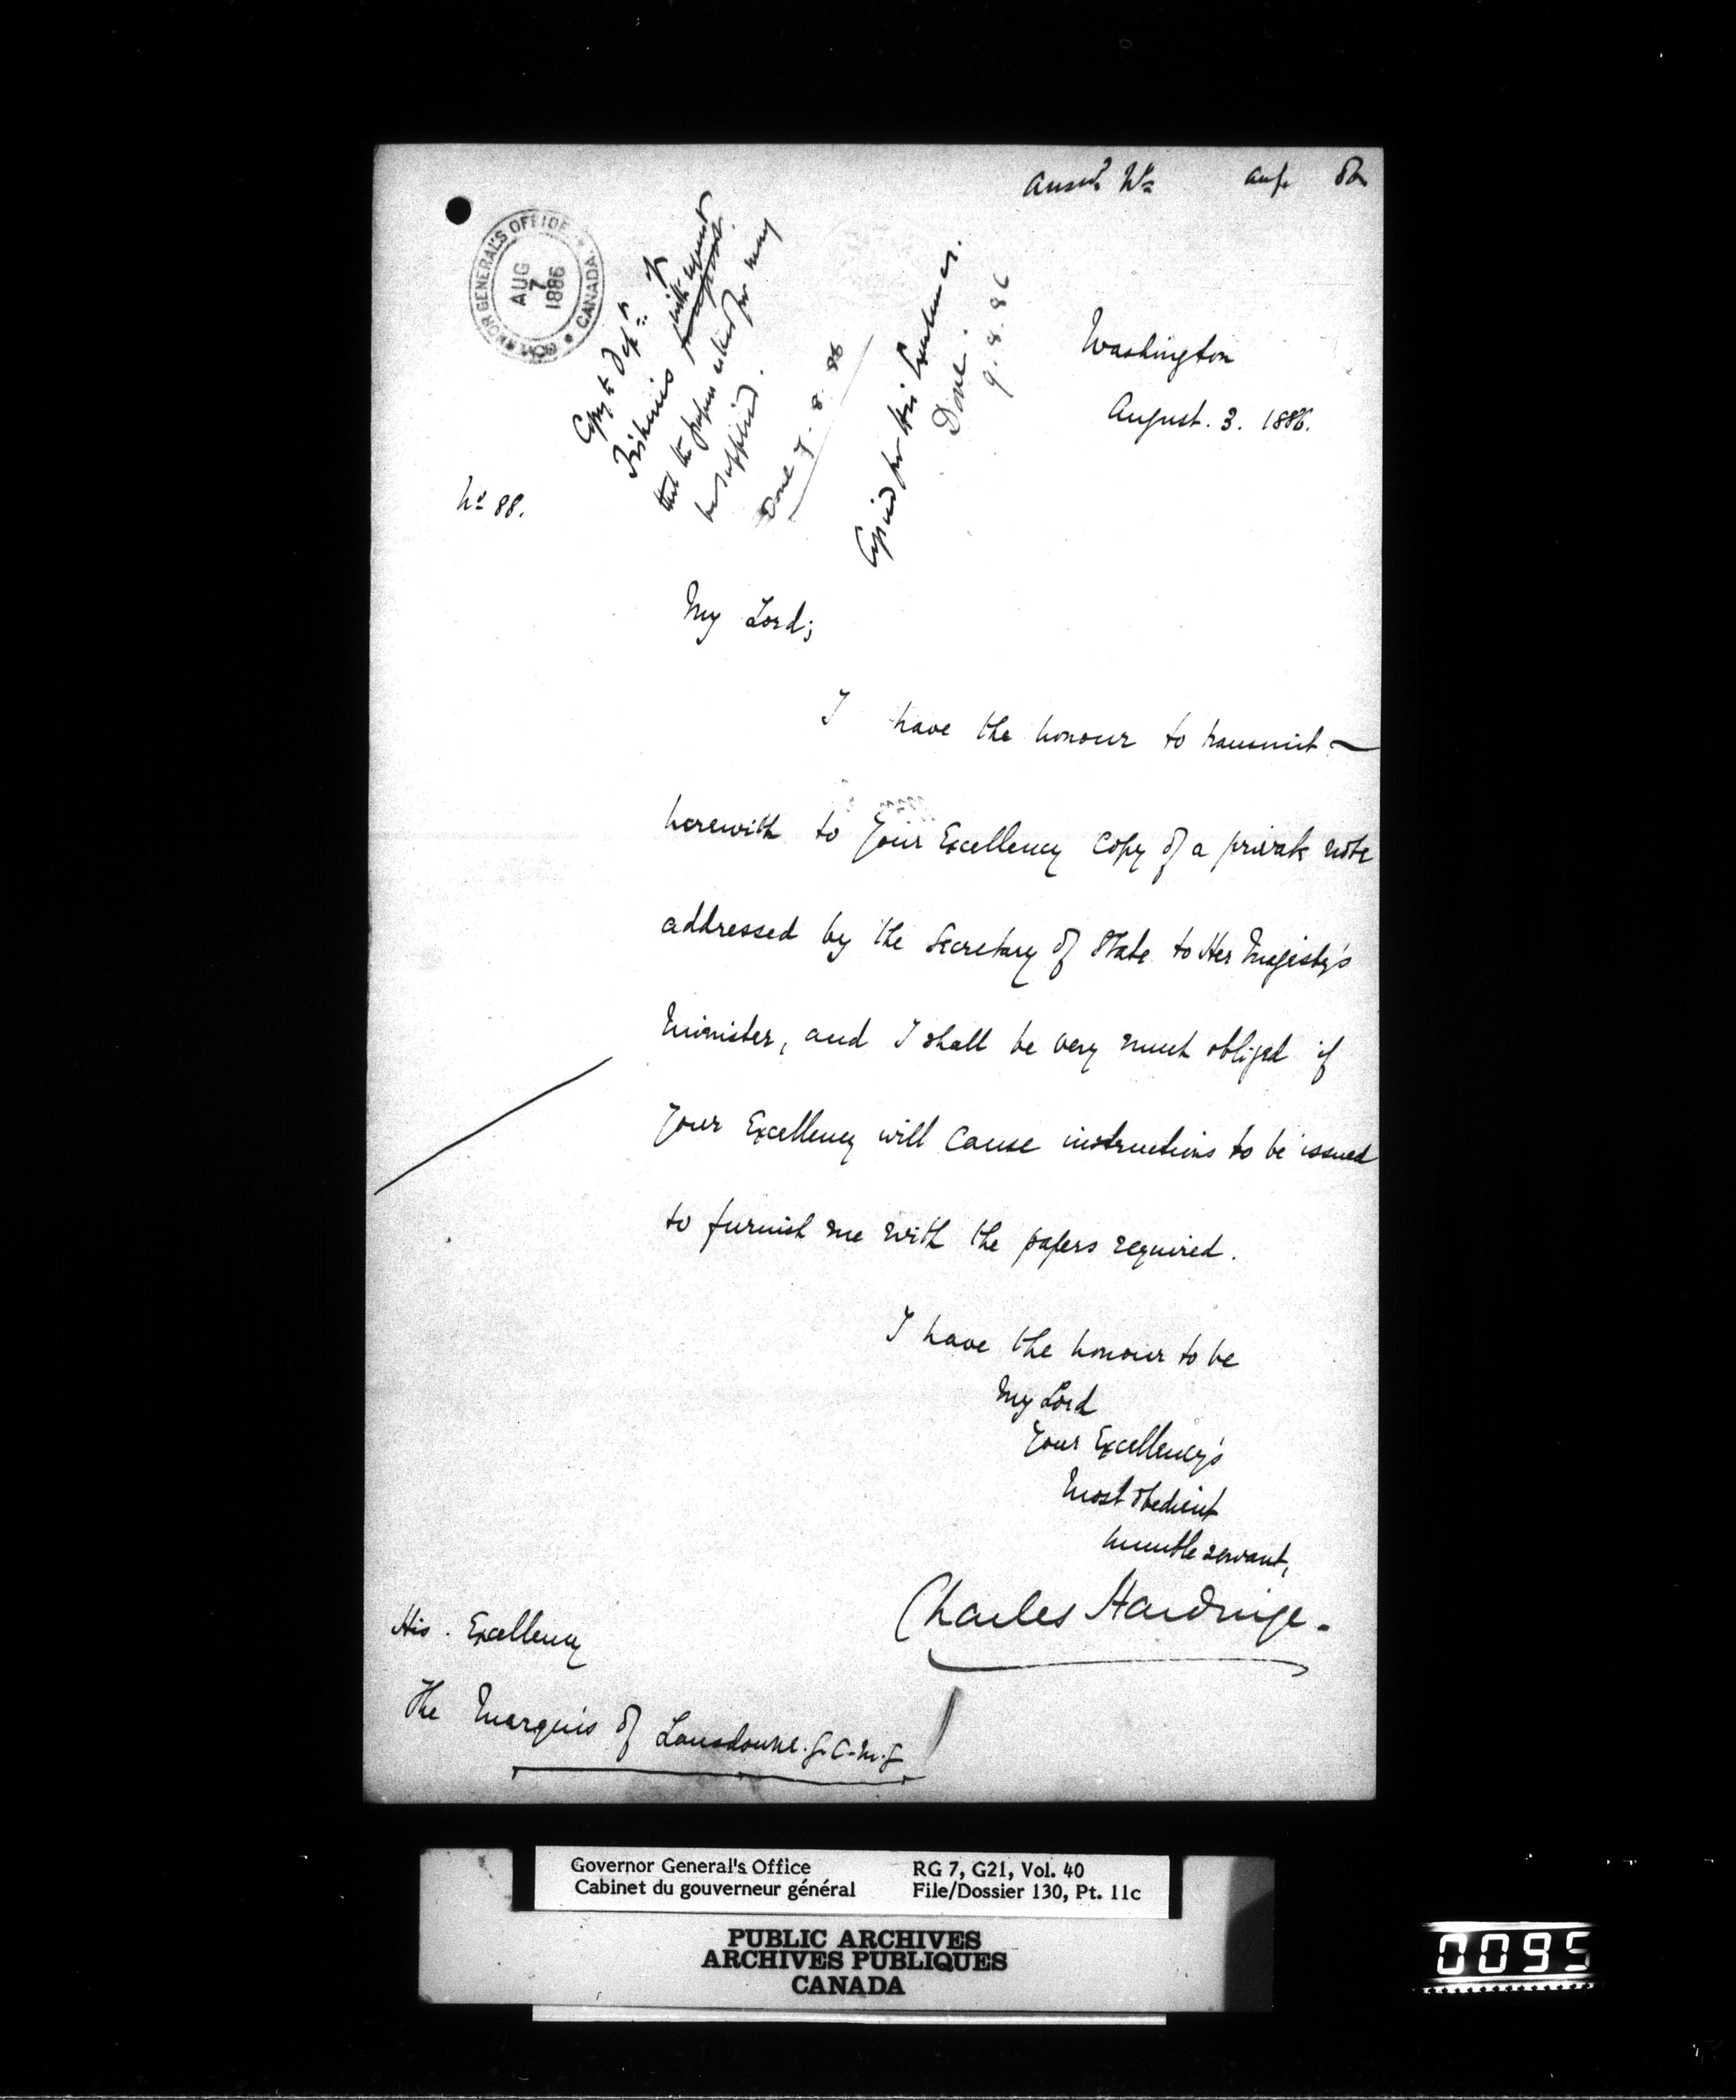 GOVERNOR GENERAL'S OFFICE
CANADA
AUG
7
1886
Copy to Depn. of
Fisheries with request
that the papers asked for may
be supplied.
Done 7. 8. 86
Copied for His Excellency.
Done.
9. 8. 86
Washington
August. 3. 1886.
No 88.
My Lord;
I have the honour to transmit
herewith to Your Excellency Copy of a private note
addressed by the Secretary of State to Her Majesty's
Minister, and I shall be very much obliged if
Your Excellency will cause instructions to be issued
to furnish me with the papers required.
I have the honour to be
My Lord
Your Excellency's
most obedient
humble servant,
Charles Hardinge.
His. Excellency
The Marquis of Lansdowne. G.C.M.G
Governor General's Office
Cabinet du gouverneur général
RG 7, G21, Vol. 40
File/Dossier 130, Pt. 11c
PUBLIC ARCHIVES
ARCHIVES PUBLIQUES
CANADA
0095